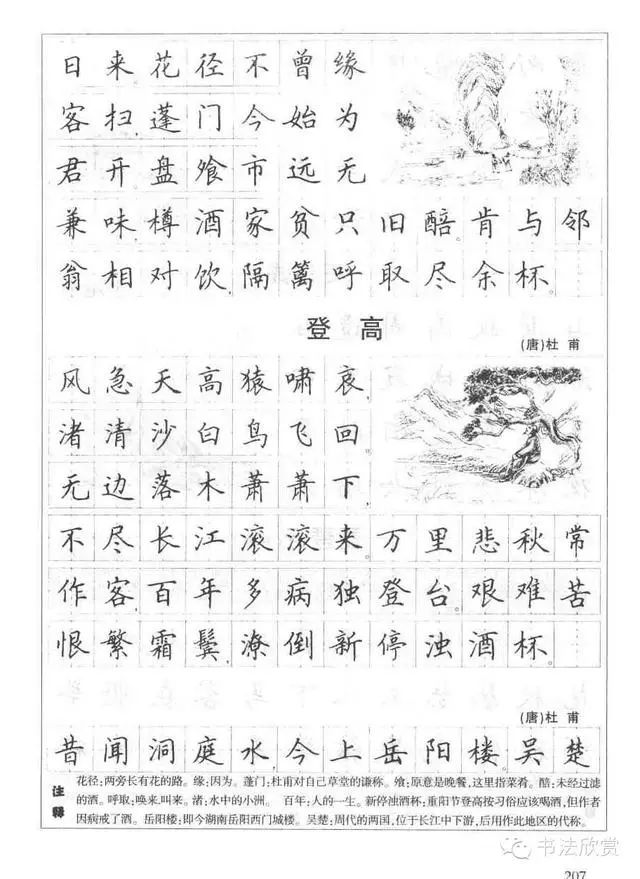 日来花径不曾缘
客扫,蓬门今始为
君开。盘飧市远无
兼味,樽酒家贫只旧醅。肯与邻
翁相对饮,隔篱呼取尽余杯。
登高
(唐)杜 甫
风急天高猿啸哀,
渚清沙白鸟飞回。
无边落木萧萧下,
不尽长江滚滚来。万里悲秋常
作客,百年多病独登台。艰难苦
恨繁霜鬓,潦倒新停浊酒杯。
(唐)杜 甫
昔闻洞庭水,今上岳阳楼。吴楚
注释
花径:两旁长有花的路。缘:因为。蓬门:杜甫对自己草堂的谦称。飧:原意是晚餐,这里指菜肴。醅:未经过滤
的酒。呼取:唤来,叫来。渚:水中的小洲。 百年:人的一生。新停浊酒杯:重阳节登高按习俗应该喝酒,但作者
因病戒了酒。岳阳楼:即今湖南岳阳西门城楼。吴楚:周代的两国,位于长江中下游,后用作此地区的代称。
书法欣赏
207